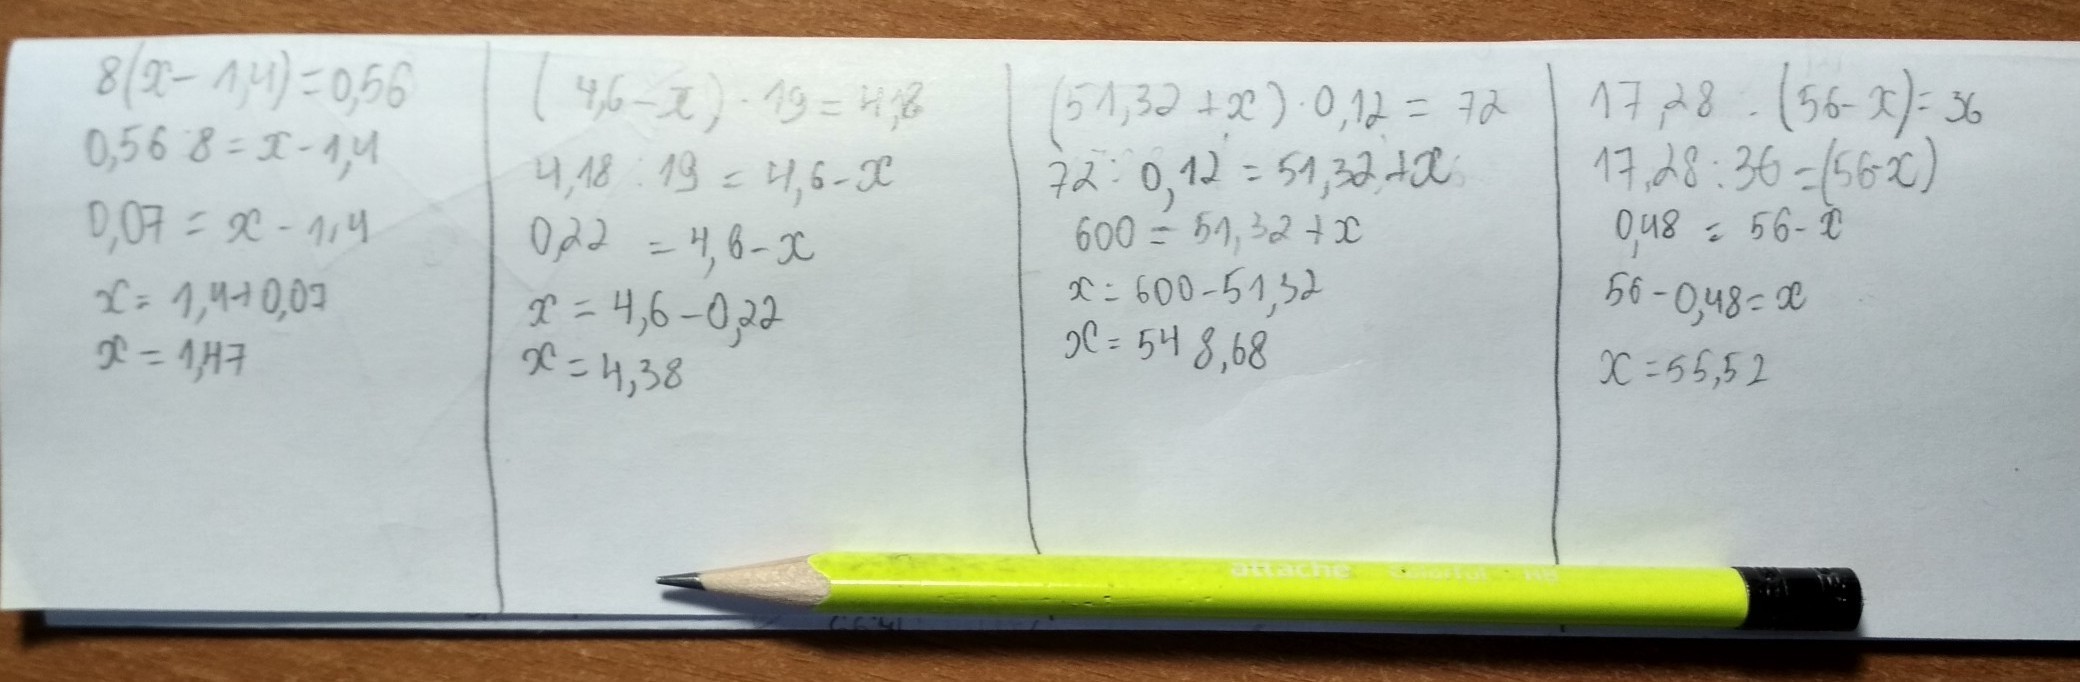 8(x-1,4)=0,56
0,56 8=x-1,4
0,07=x-1,4
x=1,4+0,07
x=1,47
(4,6-x)·19=4,8
4,18:19=4,6-x
0,22=4,6-x
x=4,6-0,22
x=4,38
(51,32+x)·0,12=72
72:0,12=51,32+x
600=51,32+x
x=600-51,32
x=548,68
17,28:(56-x)=36
17,28:36=(56-x)
0,48=56-x
56-0,48=x
x=55,52
attache colorful HB